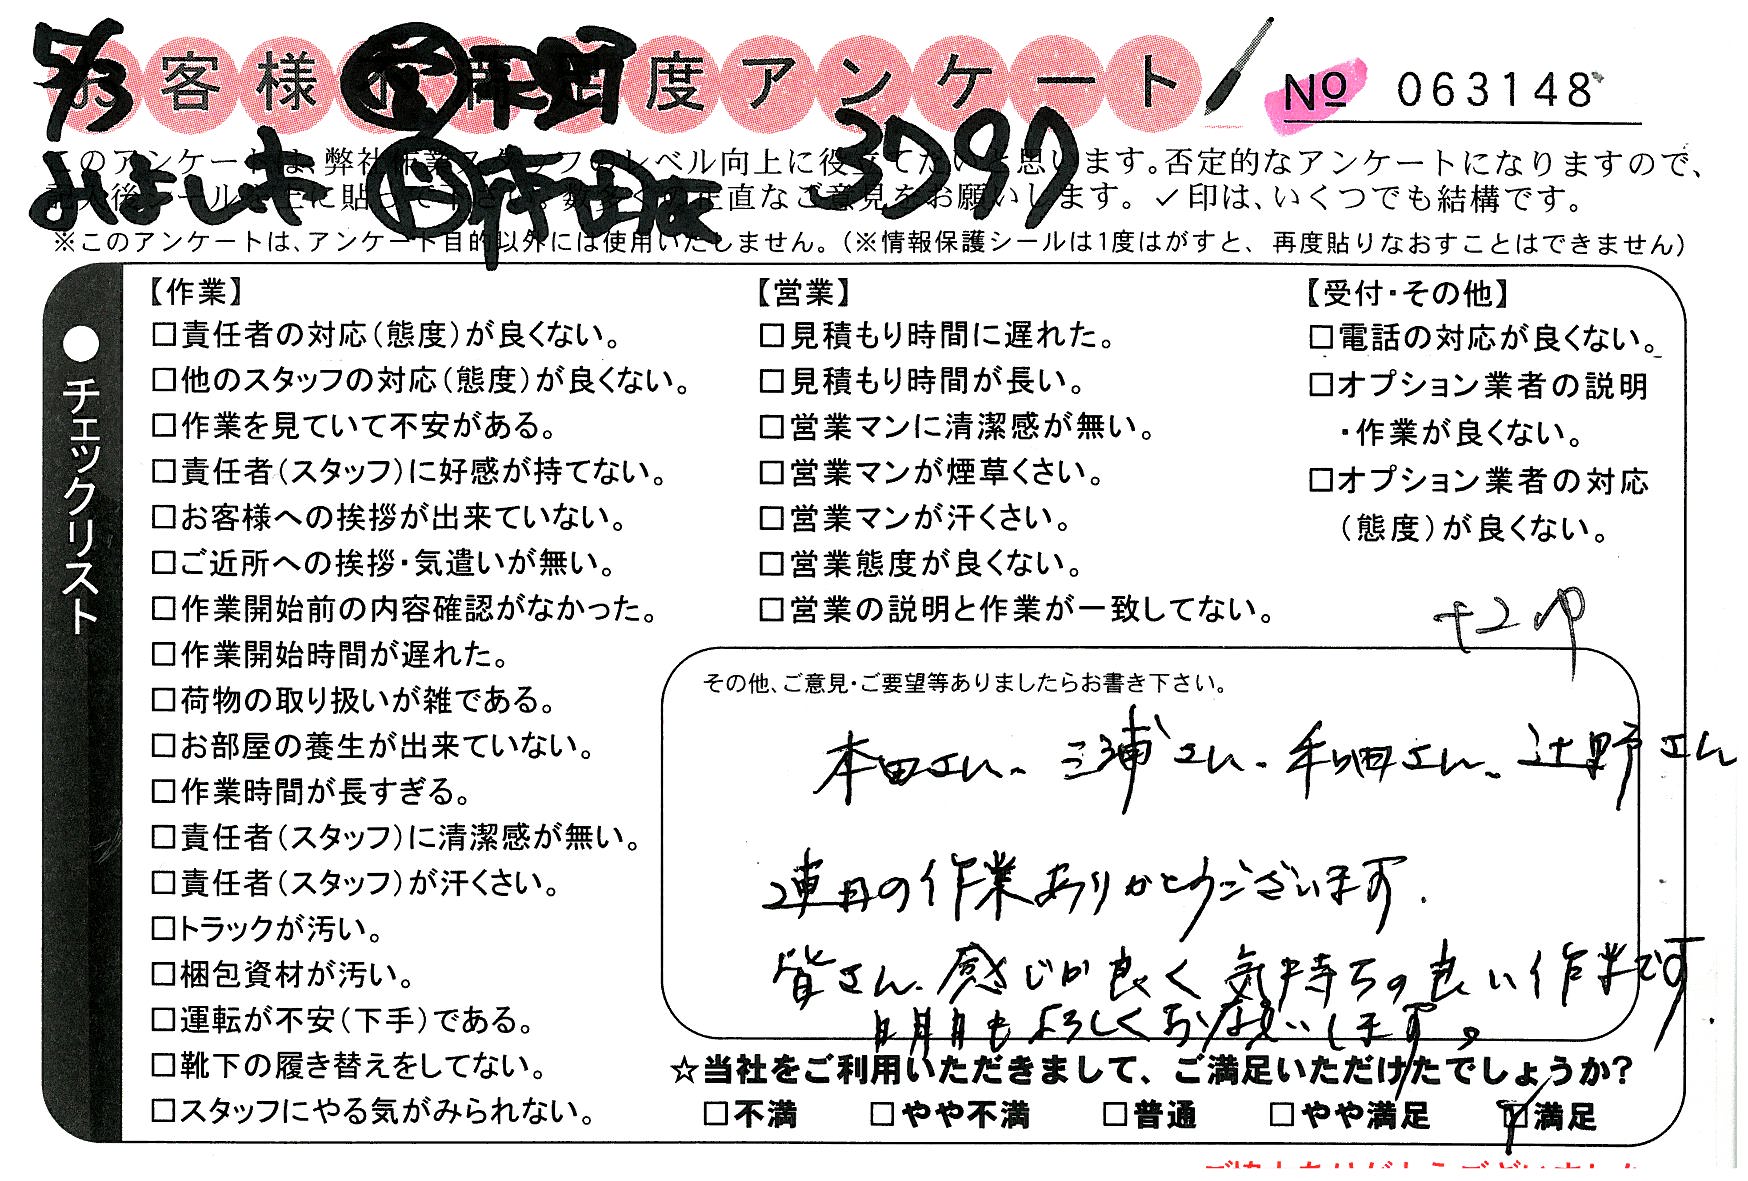 5/3
お客様不満足度アンケート
No 063148
3797
このアンケートは、弊社作業スタッフのレベル向上に役立てたいと思います。否定的なアンケートになりますので、
記入後シールを上に貼って下さい。数多くの正直なご意見をお願いします。✓印は、いくつでも結構です。
※このアンケートは、アンケート目的以外には使用いたしません。(※情報保護シールは1度はがすと、再度貼りなおすことはできません)
●チェックリスト
【作業】
□責任者の対応(態度)が良くない。
□他のスタッフの対応(態度)が良くない。
□作業を見ていて不安がある。
□責任者(スタッフ)に好感が持てない。
□お客様への挨拶が出来ていない。
□ご近所への挨拶・気遣いが無い。
□作業開始前の内容確認がなかった。
□作業開始時間が遅れた。
□荷物の取り扱いが雑である。
□お部屋の養生が出来ていない。
□作業時間が長すぎる。
□責任者(スタッフ)に清潔感が無い。
□責任者(スタッフ)が汗くさい。
□トラックが汚い。
□梱包資材が汚い。
□運転が不安(下手)である。
□靴下の履き替えをしてない。
□スタッフにやる気がみられない。
【営業】
□見積もり時間に遅れた。
□見積もり時間が長い。
□営業マンに清潔感が無い。
□営業マンが煙草くさい。
□営業マンが汗くさい。
□営業態度が良くない。
□営業の説明と作業が一致してない。
【受付・その他】
□電話の対応が良くない。
□オプション業者の説明
・作業が良くない。
□オプション業者の対応
(態度)が良くない。
その他、ご意見・ご要望等ありましたらお書き下さい。
本田さん、三浦さん、和田さん、辻野さん
連日の作業ありがとうございます.
皆さん、感じが良く気持ちの良い作業です.
明日もよろしくお願いします。
☆当社をご利用いただきまして、ご満足いただけたでしょうか?
□不満 □やや不満 □普通 □やや満足 ☑満足
ご協力ありがとうございました